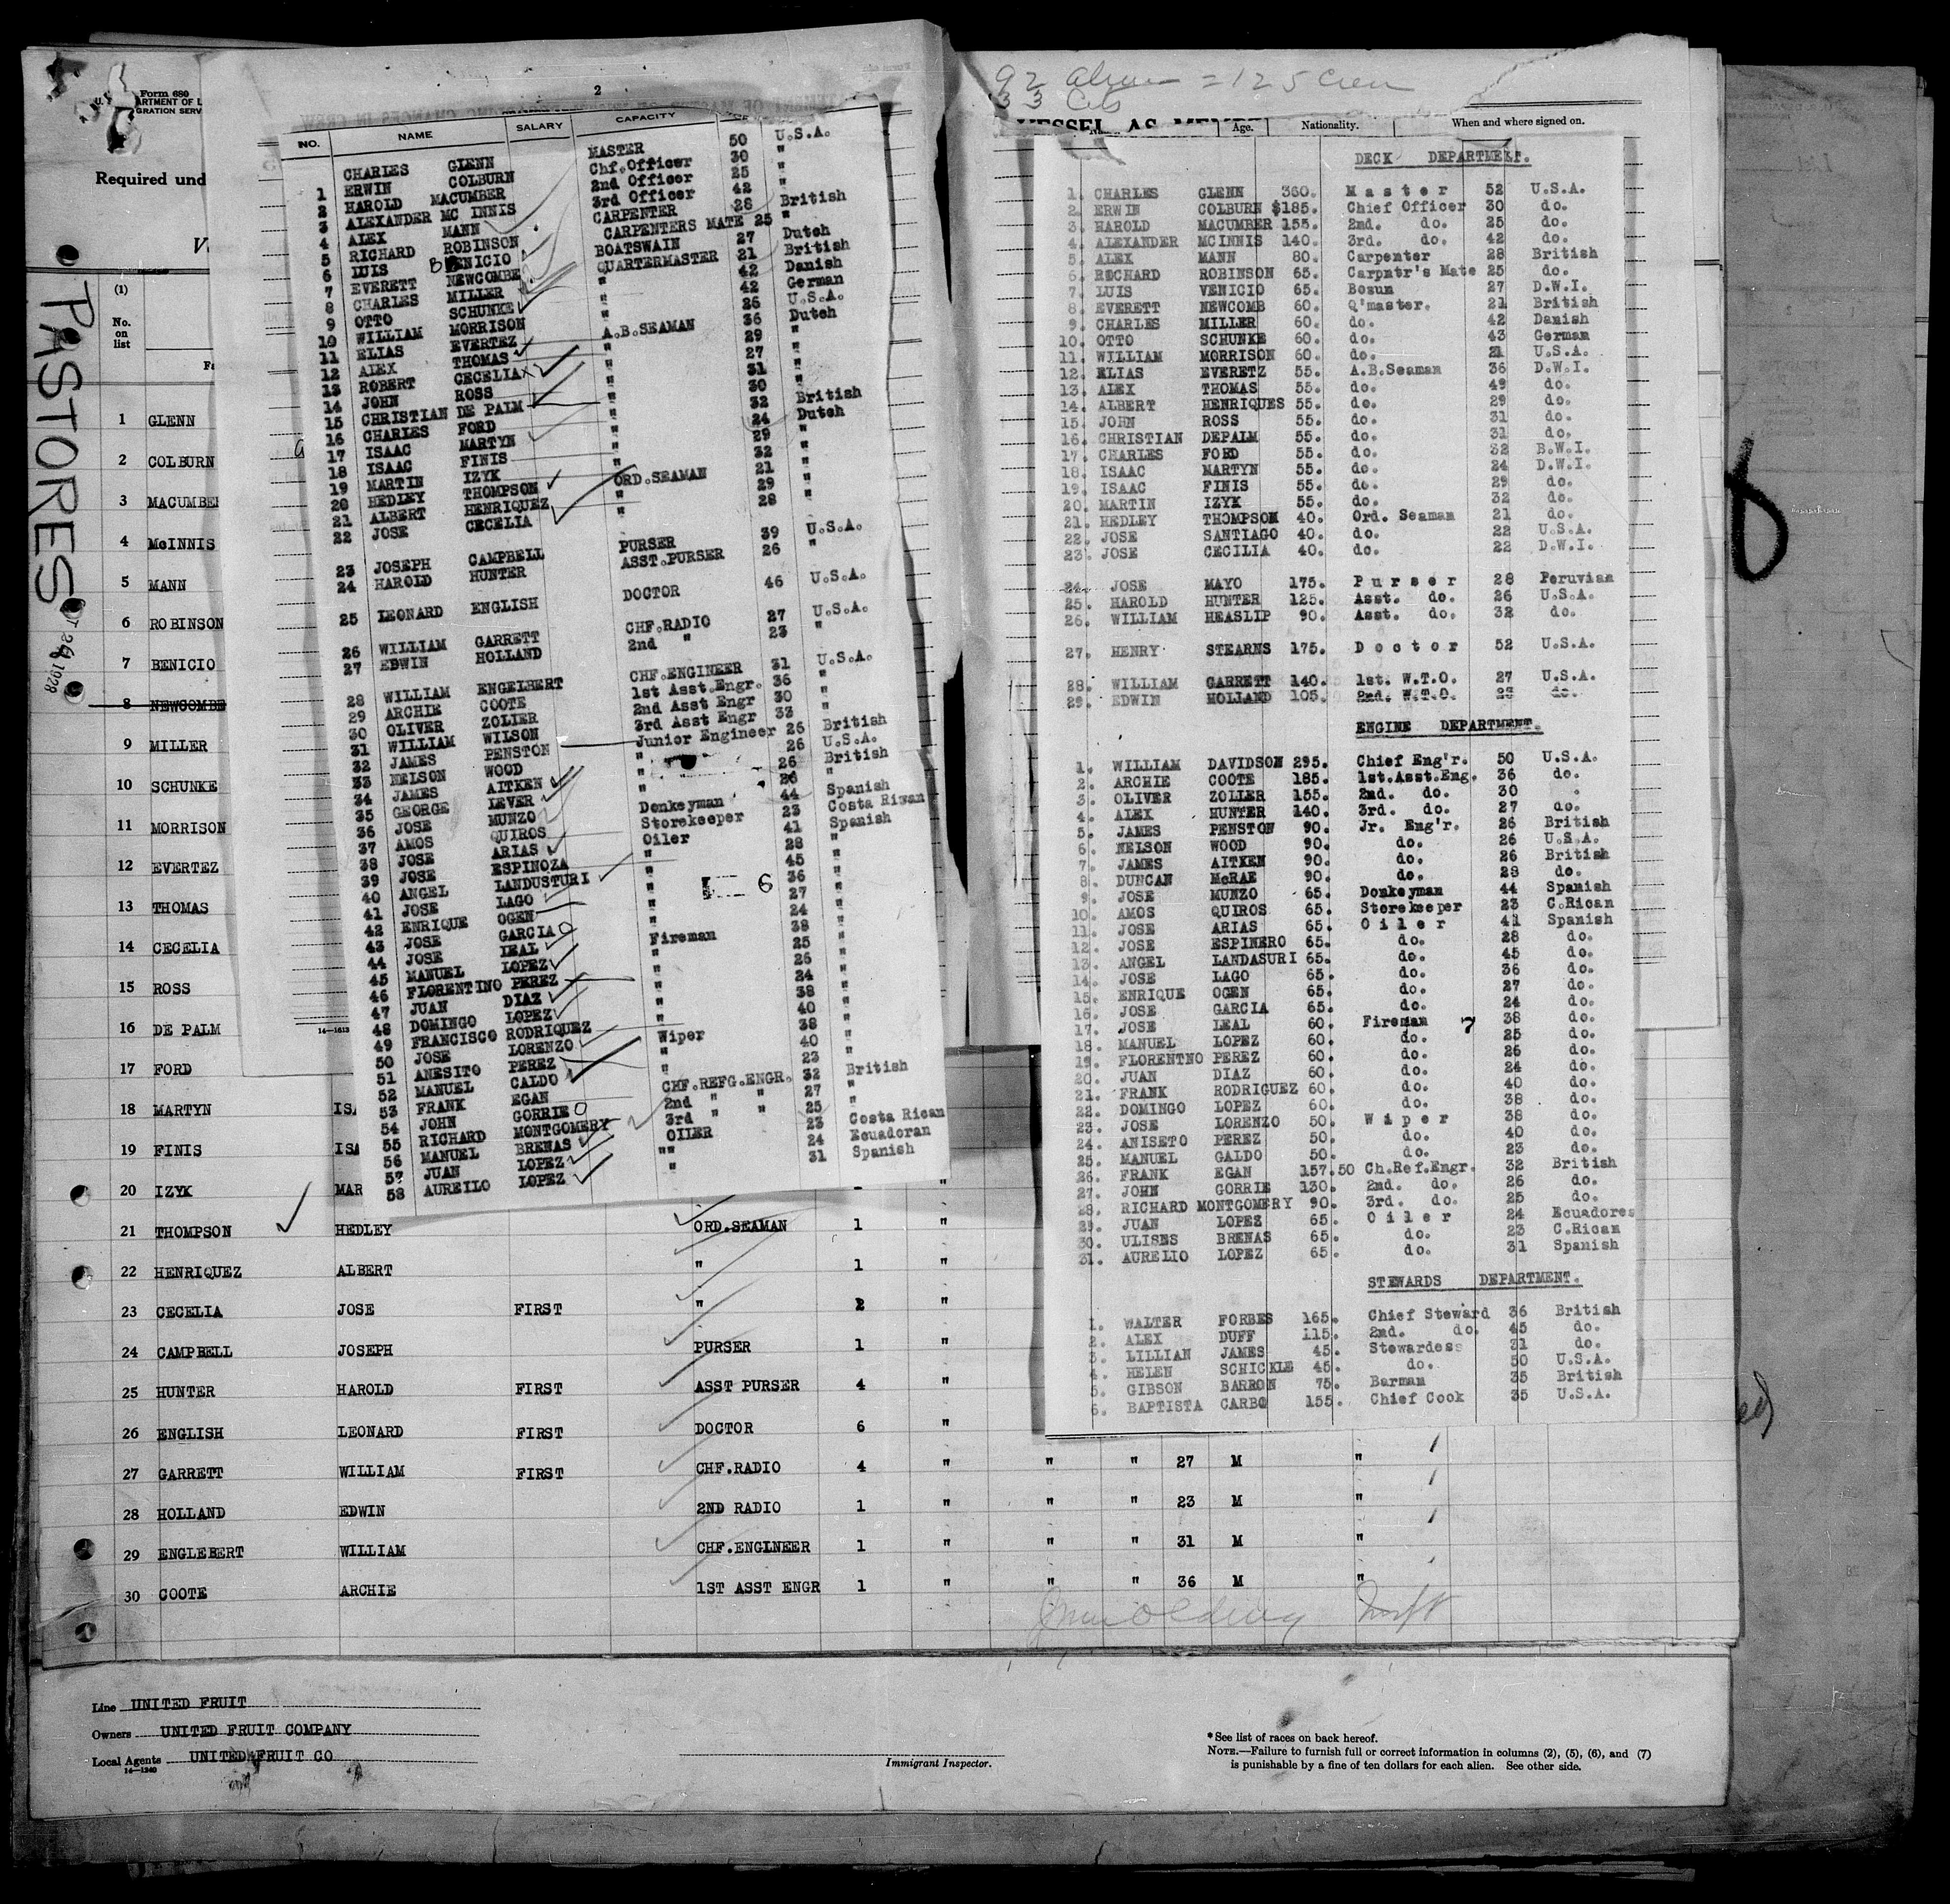 Form 680
U.
ARTMENT OF L
GRATION SERV
Required und
V
(1)
No.
on
list
PASTORES
1928
1 GLENN
2 COLBURN
3 MACUMBE
4 McINNIS
5 MANN
6 ROBINSON
7 BENICIO
8 NEWCOMBE
9 MILLER
10 SCHUNKE
11 MORRISON
12 EVERTEZ
13 THOMAS
14 CECELIA
15 ROSS
16 DE PALM
17 FORD
18 MARTYN ISA
19 FINIS ISA
20 IZYK MAR "
21 THOMPSON HEDLEY ORD.SEAMAN 1 "
22 HENRIQUEZ ALBERT " 1 "
23 CECELIA JOSE FIRST " 2 "
24 CAMPBELL JOSEPH PURSER 1 "
25 HUNTER HAROLD FIRST ASST PURSER 4 "
26 ENGLISH LEONARD FIRST DOCTOR 6 "
27 GARRETT WILLIAM FIRST CHF.RADIO 4 " " " 27 M "
28 HOLLAND EDWIN 2ND RADIO 1 " " " 23 M "
29 ENGLEBERT WILLIAM CHF.ENGINEER 1 " " " 31 M "
30 COOTE ARCHIE 1ST ASST ENGR 1 " " " 36 M "
Line UNITED FRUIT
Owners UNITED FRUIT COMPANY
Local Agents UNITED FRUIT CO
14—1240
Immigrant Inspector.
* See list of races on back hereof.
NOTE.—Failure to furnish full or correct information in columns (2), (5), (6), and (7)
is punishable by a fine of ten dollars for each alien. See other side.
2
NO. NAME SALARY CAPACITY
CHARLES GLENN MASTER 50 U.S.A.
1 ERWIN COLBURN Chf.Officer 30 "
2 HAROLD MACUMBER 2nd Officer 25 "
3 ALEXANDER MC INNIS 3rd Officer 42 "
4 ALEX MANN CARPENTER 28 British
5 RICHARD ROBINSON CARPENTERS MATE 25 "
6 LUIS BENICIO BOATSWAIN 27 Dutch
7 EVERETT NEWCOMBE QUARTERMASTER 21 British
8 CHARLES MILLER " 42 Danish
9 OTTO SCHUNKE " 42 German
10 WILLIAM MORRISON " 26 U.S.A.
11 ELIAS EVERTEZ A.B.SEAMAN 36 Dutch
12 ALEX THOMAS " 29 "
13 ROBERT CECELIA " 27 "
14 JOHN ROSS " 31 "
15 CHRISTIAN DE PALM " 30 "
16 CHARLES FORD " 32 British
17 ISAAC MARTYN " 24 Dutch
18 ISAAC FINIS " 29 "
19 MARTIN IZYK " 32 "
20 HEDLEY THOMPSON ORD.SEAMAN 21 "
21 ALBERT HENRIQUEZ " 29 "
22 JOSE CECELIA " 28 "
23 JOSEPH CAMPBELL PURSER 39 U.S.A.
24 HAROLD HUNTER ASST.PURSER 26 "
25 LEONARD ENGLISH DOCTOR 46 U.S.A.
26 WILLIAM GARRETT CHF.RADIO 27 U.S.A.
27 EDWIN HOLLAND 2nd " 23 "
28 WILLIAM ENGELBERT CHF.ENGINEER 31 U.S.A.
29 ARCHIE COOTE 1st Asst.Engr. 36 "
30 OLIVER ZOLIER 2nd Asst Engr 30 "
31 WILLIAM WILSON 3rd Asst Engr 33 "
32 JAMES PENSTON Junior Engineer 26 British
33 NELSON WOOD " 26 U.S.A.
34 JAMES AITKEN " 26 British
35 GEORGE LEVER " 26 "
36 JOSE MUNZO Donkeyman 44 Spanish
37 AMOS QUIROS Storekeeper 23 Costa Rican
38 JOSE ARIAS Oiler 41 Spanish
39 JOSE ESPINOZA " 28 "
40 ANGEL LANDUSTURI " 45 "
41 JOSE LAGO " 6 36 "
42 ENRIQUE OGEN " 27 "
43 JOSE GARCIA " 24 "
44 JOSE LEAL Fireman 38 "
45 MANUEL LOPEZ " 25 "
46 FLORENTINO PEREZ " 26 "
47 JUAN DIAZ " 24 "
48 DOMINGO LOPEZ " 38 "
49 FRANCISCO RODRIQUEZ " 40 "
50 JOSE LORENZO Wiper 38 "
51 ANESITO PEREZ " 40 "
52 MANUEL CALDO " 23 "
53 FRANK EGAN CHF.REFG.ENGR. 32 British
54 JOHN GORRIE 2nd " " 27 "
55 RICHARD MONTGOMERY 3rd " " 25 "
56 MANUEL BRENAS OILER 23 Costa Rican
57 JUAN LOPEZ "" 24 Ecuadoran
58 AURELIO LOPEZ " 31 Spanish
14—1613
92 Alien = 125 Crew
33 Cits
VESSEL AS MEMBE
Age. Nationality. When and where signed on.
DECK DEPARTMENT.
1. CHARLES GLENN 360. Master 52 U.S.A.
2. ERWIN COLBURN $185. Chief Officer 30 do.
3. HAROLD MACUMBER 155. 2nd. do. 25 do.
4. ALEXANDER MCINNIS 140. 3rd. do. 42 do.
5. ALEX MANN 80. Carpenter 28 British
6. RICHARD ROBINSON 65. Carpntr's Mate 25 do.
7. LUIS VENICIO 65. Bosun 27 D.W.I.
8. EVERETT NEWCOMB 60. Q'master. 21 British
9. CHARLES MILLER 60. do. 42 Danish
10. OTTO SCHUNKE 60. do. 43 German
11. WILLIAM MORRISON 60. do. 21 U.S.A.
12. ELIAS EVERETZ 55. A.B.Seaman 36 D.W.I.
13. ALEX THOMAS 55. do. 49 do.
14. ALBERT HENRIQUES 55. do. 29 do.
15. JOHN ROSS 55. do. 31 do.
16. CHRISTIAN DEPALM 55. do. 31 do.
17. CHARLES FORD 55. do. 32 B.W.I.
18. ISAAC MARTYN 55. do. 24 D.W.I.
19. ISAAC FINIS 55. do. 29 do.
20. MARTIN IZYK 55. do. 32 do.
21. HEDLEY THOMPSON 40. Ord. Seaman 21 do.
22. JOSE SANTIAGO 40. do. 22 U.S.A.
23. JOSE CECILIA 40. do. 22 D.W.I.
24. JOSE MAYO 175. Purser 28 Peruvian
25. HAROLD HUNTER 125. Asst. do. 26 U.S.A.
26. WILLIAM HEASLIP 90. Asst. do. 32 do.
27. HENRY STEARNS 175. Doctor 52 U.S.A.
28. WILLIAM GARRETT 140. 1st. W.T.O. 27 U.S.A.
29. EDWIN HOLLAND 105. 2nd. W.T.O. 23 do.
ENGINE DEPARTMENT.
1. WILLIAM DAVIDSON 295. Chief Eng'r. 50 U.S.A.
2. ARCHIE COOTE 185. 1st.Asst.Eng. 36 do.
3. OLIVER ZOLLER 155. 2nd. do. 30
4. ALEX HUNTER 140. 3rd. do. 27 do.
5. JAMES PENSTON 90. Jr. Eng'r. 26 British
6. NELSON WOOD 90. do. 26 U.S.A.
7. JAMES AITKEN 90. do. 26 British
8. DUNCAN McRAE 90. do. 28 do.
9. JOSE MUNZO 65. Donkeyman 44 Spanish
10. AMOS QUIROS 65. Storekeeper 23 C.Rican
11. JOSE ARIAS 65. Oiler 41 Spanish
12. JOSE ESPINERO 65. do. 28 do.
13. ANGEL LANDASURI 65. do. 45 do.
14. JOSE LAGO 65. do. 36 do.
15. ENRIQUE OGEN 65. do. 27 do.
16. JOSE GARCIA 65. do. 24 do.
17. JOSE LEAL 60. Fireman 7 38 do.
18. MANUEL LOPEZ 60. do. 25 do.
19. FLORENTNO PEREZ 60. do. 26 do.
20. JUAN DIAZ 60. do. 24 do.
21. FRANK RODRIGUEZ 60. do. 40 do.
22. DOMINGO LOPEZ 60. do. 38 do.
23. JOSE LORENZO 50. Wiper 38 do.
24. ANISETO PEREZ 50. do. 40 do.
25. MANUEL GALDO 50. do. 23 do.
26. FRANK EGAN 157.50 Ch.Ref.Engr. 32 British
27. JOHN GORRIE 130. 2nd. do. 26 do.
28. RICHARD MONTGOMERY 90. 3rd. do. 25 do.
29. JUAN LOPEZ 65. Oiler 24 Ecuadores
30. ULISES BRENAS 65. do. 23 C.Rican
31. AURELIO LOPEZ 65. do. 31 Spanish
STEWARDS DEPARTMENT.
1. WALTER FORBES 165. Chief Steward 36 British
2. ALEX DUFF 115. 2nd. do. 45 do.
3. LILLIAN JAMES 45. Stewardess 31 do.
4. HELEN SCHICKLE 45. do. 50 U.S.A.
5. GIBSON BARRON 75. Barman 35 British
6. BAPTISTA CARBO 155. Chief Cook 35 U.S.A.